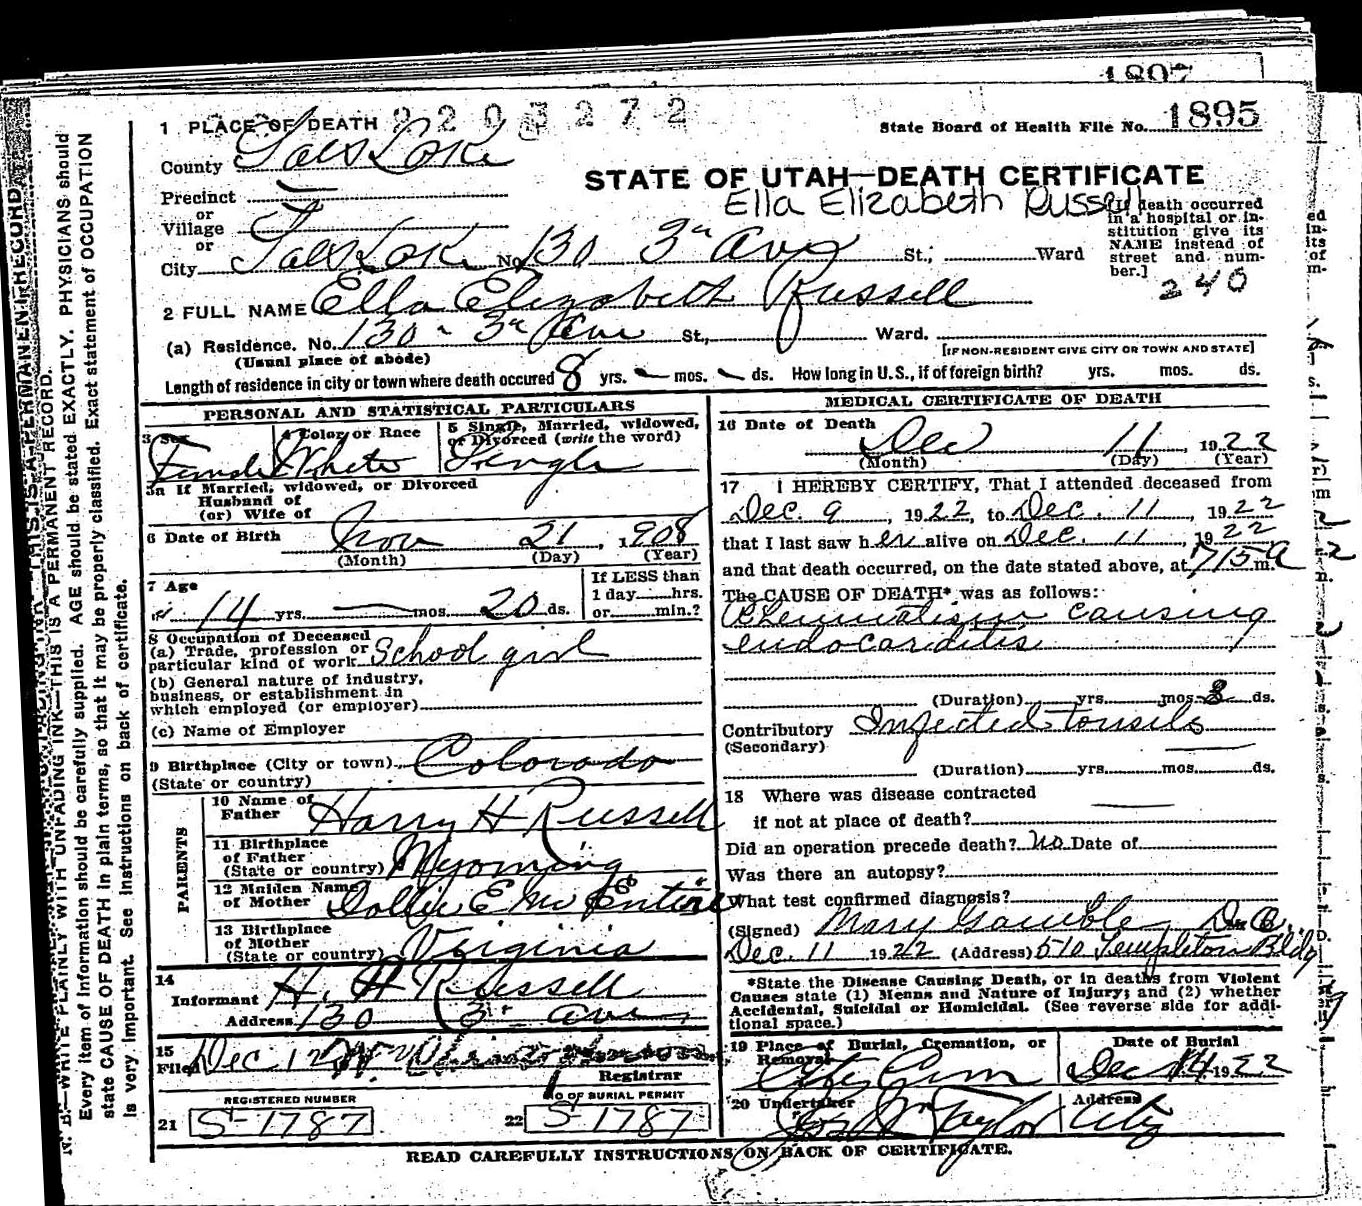 1897
1 PLACE OF DEATH 2203272
State Board of Health File No. 1895
County Salt Lake
STATE OF UTAH—DEATH CERTIFICATE
Precinct
Ella Elizabeth Russell
or
Village
or
City Salt Lake No. 130 3rd Ave St.; Ward
[If death occurred
in a hospital or in-
stitution give its
NAME instead of
street and num-
ber.]
240
2 FULL NAME Ella Elizabeth Russell
(a) Residence. No. 130 - 3rd Ave St., Ward.
(Usual place of abode) [IF NON-RESIDENT GIVE CITY OR TOWN AND STATE]
Length of residence in city or town where death occured 8 yrs. — mos. — ds. How long in U. S., if of foreign birth? yrs. mos. ds.
PERSONAL AND STATISTICAL PARTICULARS
3 Sex Female
4 Color or Race White
5 Single, Married, Widowed,
or Divorced (write the word)
Single
3a If Married, widowed, or Divorced
Husband of
(or) Wife of
6 Date of Birth Nov 21, 1908
(Month) (Day) (Year)
7 Age
14 yrs. — mos. 20 ds.
If LESS than
1 day hrs.
or min.?
8 Occupation of Deceased
(a) Trade, profession or
particular kind of work School girl
(b) General nature of industry,
business, or establishment in
which employed (or employer)
(c) Name of Employer
9 Birthplace (City or town) Colorado
(State or country)
PARENTS
10 Name of
Father Harry H Russell
11 Birthplace
of Father
(State or country) Wyoming
12 Maiden Name
of Mother Dollie E McEntire
13 Birthplace
of Mother
(State or country) Virginia
14
Informant H. H Russell
Address 130 3rd Ave
15
Filed Dec 12
Registrar
REGISTERED NUMBER
21 S-1787
NO OF BURIAL PERMIT
22 S-1787
MEDICAL CERTIFICATE OF DEATH
16 Date of Death
Dec 11, 1922
(Month) (Day) (Year)
17 I HEREBY CERTIFY, That I attended deceased from
Dec. 9, 1922, to Dec. 11, 1922
that I last saw her alive on Dec. 11, 1922
and that death occurred, on the date stated above, at 715 A m.
The CAUSE OF DEATH* was as follows:
Rheumatism causing
endocarditis
(Duration) yrs. mos. 3 ds.
Contributory Infected tonsils
(Secondary)
(Duration) yrs. mos. ds.
18 Where was disease contracted
if not at place of death?
Did an operation precede death? No Date of
Was there an autopsy?
What test confirmed diagnosis?
(Signed) Mary Gamble
Dec. 11 1922 (Address) 510 Templeton Bldg
*State the Disease Causing Death, or in deaths from Violent
Causes state (1) Means and Nature of Injury; and (2) whether
Accidental, Suicidal or Homicidal. (See reverse side for addi-
tional space.)
19 Place of Burial, Cremation, or
Removal
City Cem
Date of Burial
Dec 14 1922
20 Undertaker
Jos Wm Taylor
Address
City
READ CAREFULLY INSTRUCTIONS ON BACK OF CERTIFICATE.
N. B.—WRITE PLAINLY WITH UNFADING INK—THIS IS A PERMANENT RECORD.
Every item of information should be carefully supplied. AGE should be stated EXACTLY. PHYSICIANS should
state CAUSE OF DEATH in plain terms, so that it may be properly classified. Exact statement of OCCUPATION
is very important. See instructions on back of certificate.